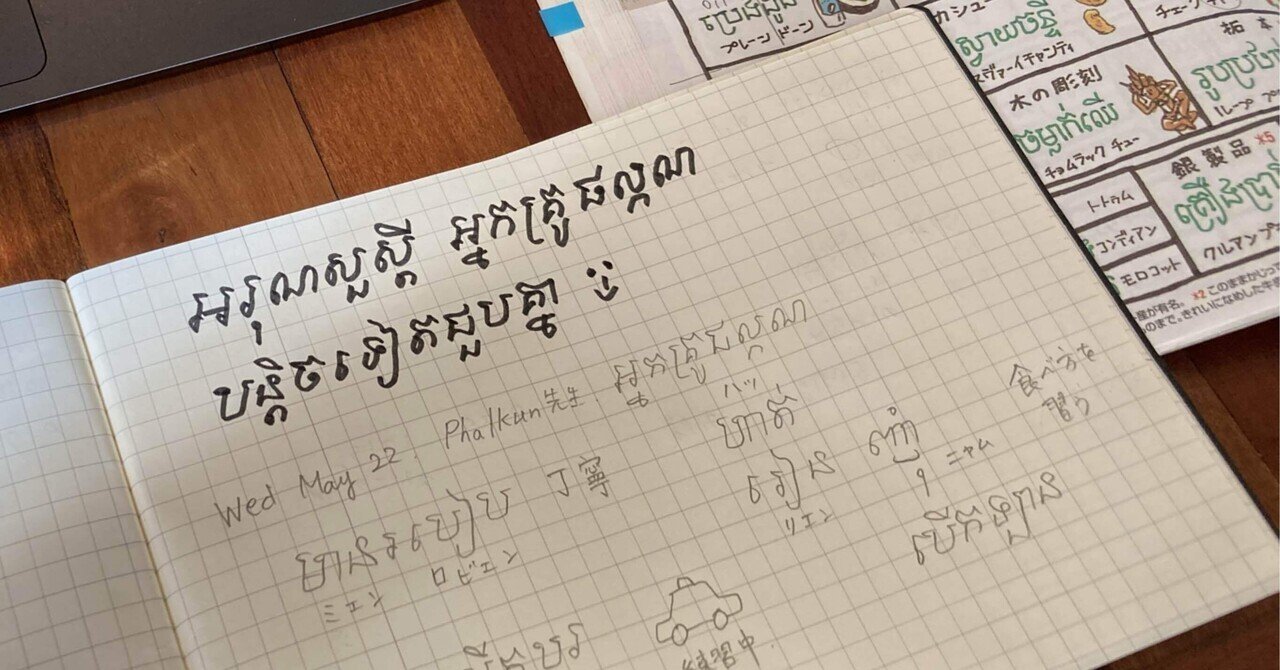 អរុណសួស្តី អ្នកគ្រូផល្គុណ
បន្តិចទៀតជួបគ្នា
Wed May 22. Phalkun先生 អ្នកគ្រូផល្គុណ
មានរបៀប 丁寧
ミエン ロビエン
ហាត់
ハッ
រៀន ញ៉ាំ
リエン ニャム
食べ方を
習う
បើកឡាន
練習中
プレーン ドーン
カシュー
ស្វាយចន្ទី
スヴァーイ チャンティ
木の彫刻
ចម្លាក់ឈើ
チョムラック チュー
銀製品 *5
クルアン
トトゥム
コンディアン
モロコット
産が有名。 *2 このままかじっ
のまで。きれいになめした牛